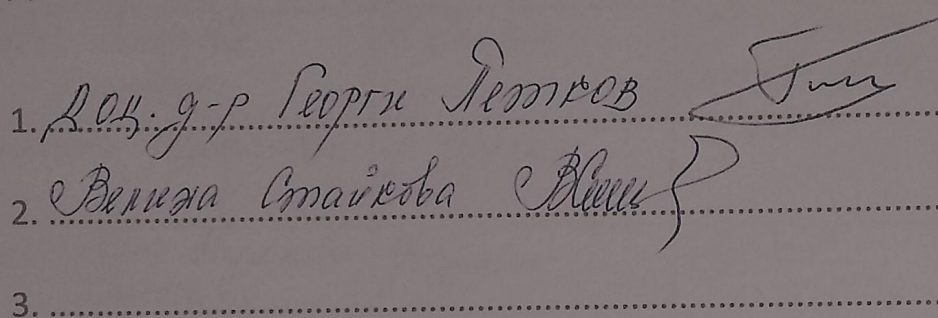 1. Доц. д-р Георги Петков
2. Велина Стайкова
3.